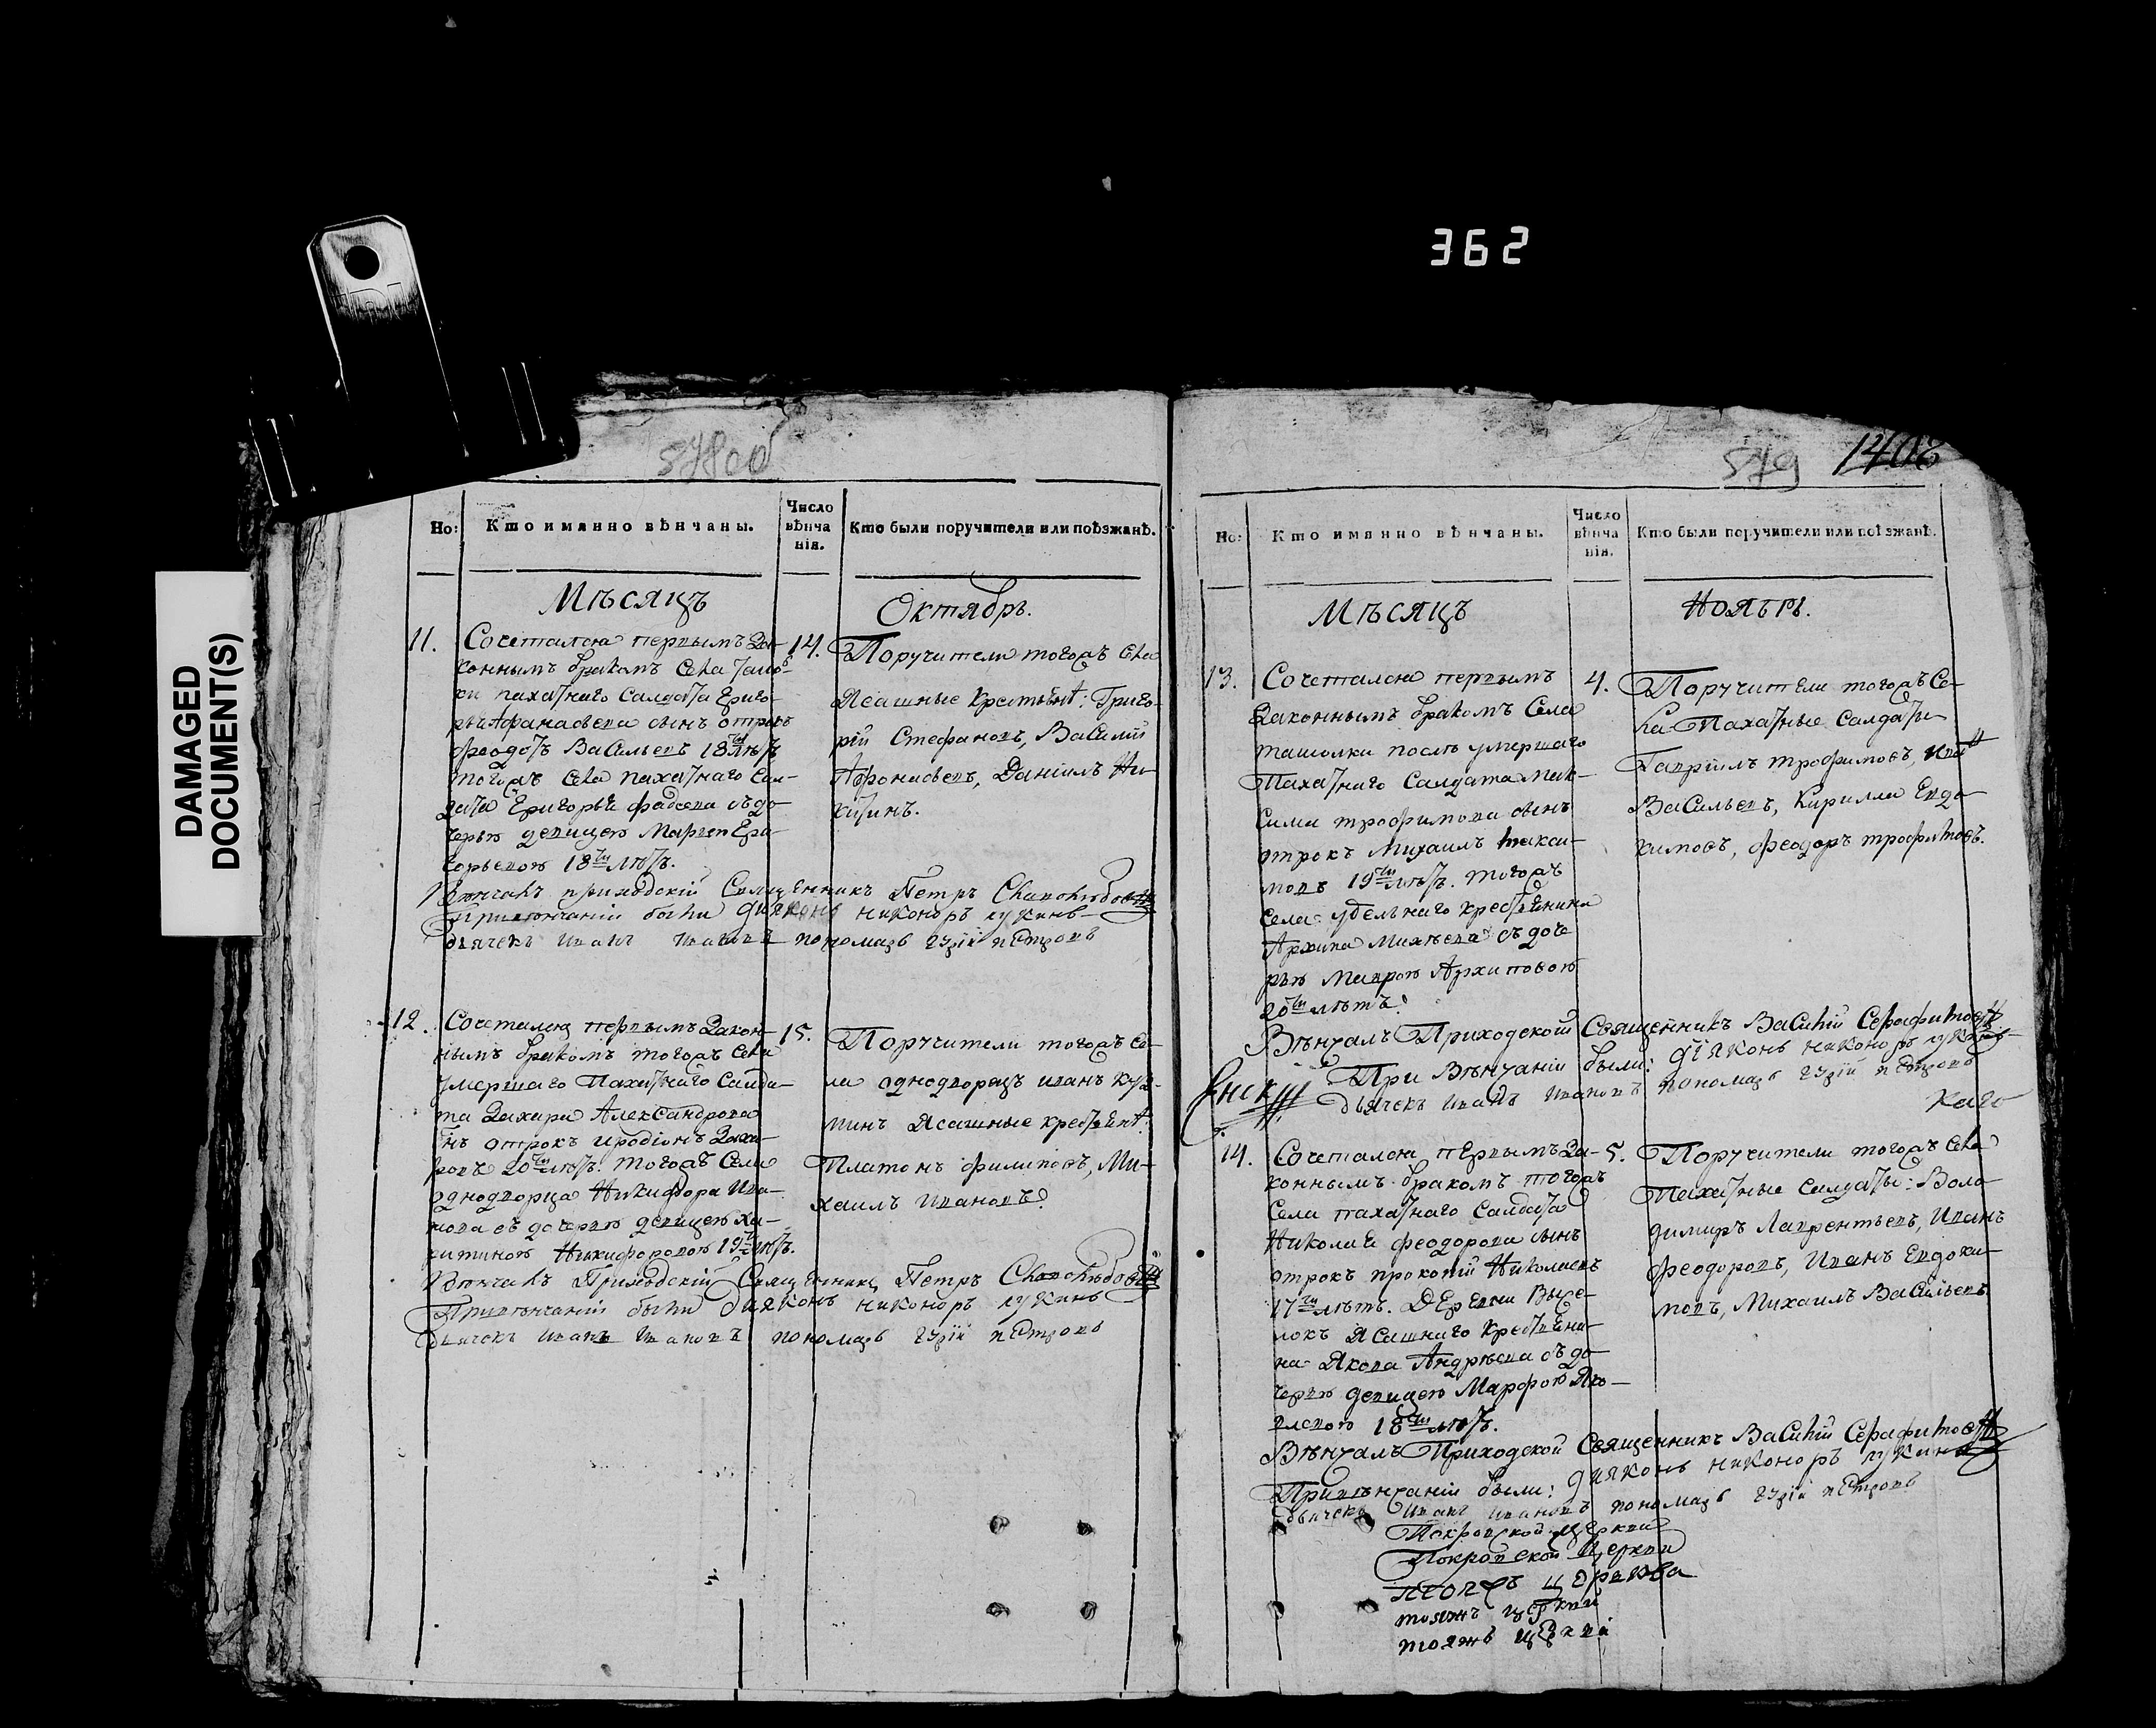 362
DAMAGED
DOCUMENT(S)
578об
Но:
Кто имянно вѣнчаны.
Число
вѣнча
нія.
Кто были поручители или поѣзжанѣ.
Мѣсяцъ
Октябрь.
11.
Сочетался первымъ За-
коннымъ бракомъ села
пахатнаго Салдата Григо-
рья Афанасьева сынъ отрокъ
Феодотъ Васильевъ 18 ти лѣтъ
тогожъ села пахатнаго Сал-
дата Григорья Фадеева съ до-
черью девицею
горьевою 18 ти лѣтъ.
14.
Поручители тогожъ села
Ясашные крестьянѣ: Григо-
рій Стефановъ, Василій
Афонасьевъ, Даніилъ Ни-
китинъ.
Вѣнчалъ приходскій Священникъ Петръ
При вѣнчаніи были дияконъ никоноръ лукинъ
дьячекъ иванъ ивановъ пономарь гурій петровъ
12.
Сочетался первымъ Закон-
нымъ бракомъ тогожъ села
умершаго Пахатнаго Салда-
та Захара Александрова
нъ отрокъ иродіонъ Заха-
ровъ 20 ти лѣтъ. тогожъ Села
однодворца Никифора Ива-
нова съ дочерью девицею Ха-
ритиною Никифоровою 19 ти лѣтъ.
15.
Поручители тогожъ се-
ла однодворецъ иванъ Куз-
минъ Ясашные крестьянѣ:
Платонъ филиповъ, Ми-
хаилъ Ивановъ.
Вѣнчалъ Приходскій Священникъ Петръ
При вѣнчаніи были дияконъ никоноръ лукинъ
дьячекъ иванъ ивановъ пономарь гурій петровъ
579
1408
Но:
Кто имянно вѣнчаны.
Число
вѣнча
нія.
Кто были поручители или поѣзжанѣ.
Мѣсяцъ
Ноябрь.
13.
Сочетался первымъ
Законнымъ бракомъ Села
ташолки послѣ умершаго
Пахатнаго Салдата Мак-
сима трофимова сынъ
отрокъ Михаилъ Макси-
мовъ 19 ти лѣтъ. тогожъ
села удѣльнаго крестьянина
Архипа Михѣева съ доче
рью Маврою Архиповою
20 ти лѣтъ.
4.
Поручители тогожъ Се-
ла Пахатные Салдаты
Гавріилъ трофимовъ,
Васильевъ, Кирилла Евдо-
кимовъ, феодоръ трофимовъ.
Вѣнчалъ Приходской Священникъ Василій Серафимовъ
При Вѣнчаніи были: дїяконъ никоноръ лукинъ
дьячекъ иванъ ивановъ пономарь гурій петровъ
каго
14.
Сочетался первымъ За-
коннымъ бракомъ тогожъ
Села пахатнаго Салдата
Николая феодорова сынъ
отрокъ прокопій Николаевъ
17 ти лѣтъ. Деревни Высе-
локъ Ясашнаго крестьяни-
на Якова Андрѣева съ до-
черью девицею Марфою Яко-
влевою 18 ти лѣтъ.
5.
Поручители тогожъ села
Пахатные Салдаты: Воло-
димиръ Лаврентьевъ, Иванъ
феодоровъ, Иванъ Евдоки-
мовъ, Михаилъ Васильевъ
Вѣнчалъ Приходской Священникъ Василій Серафимовъ
При вѣнчаніи были: дияконъ никоноръ лукинъ
дьячекъ иванъ ивановъ пономарь гурій петровъ
Покровской церкви
Покровской Церкви
тояжъ церкви
тояжъ церкви